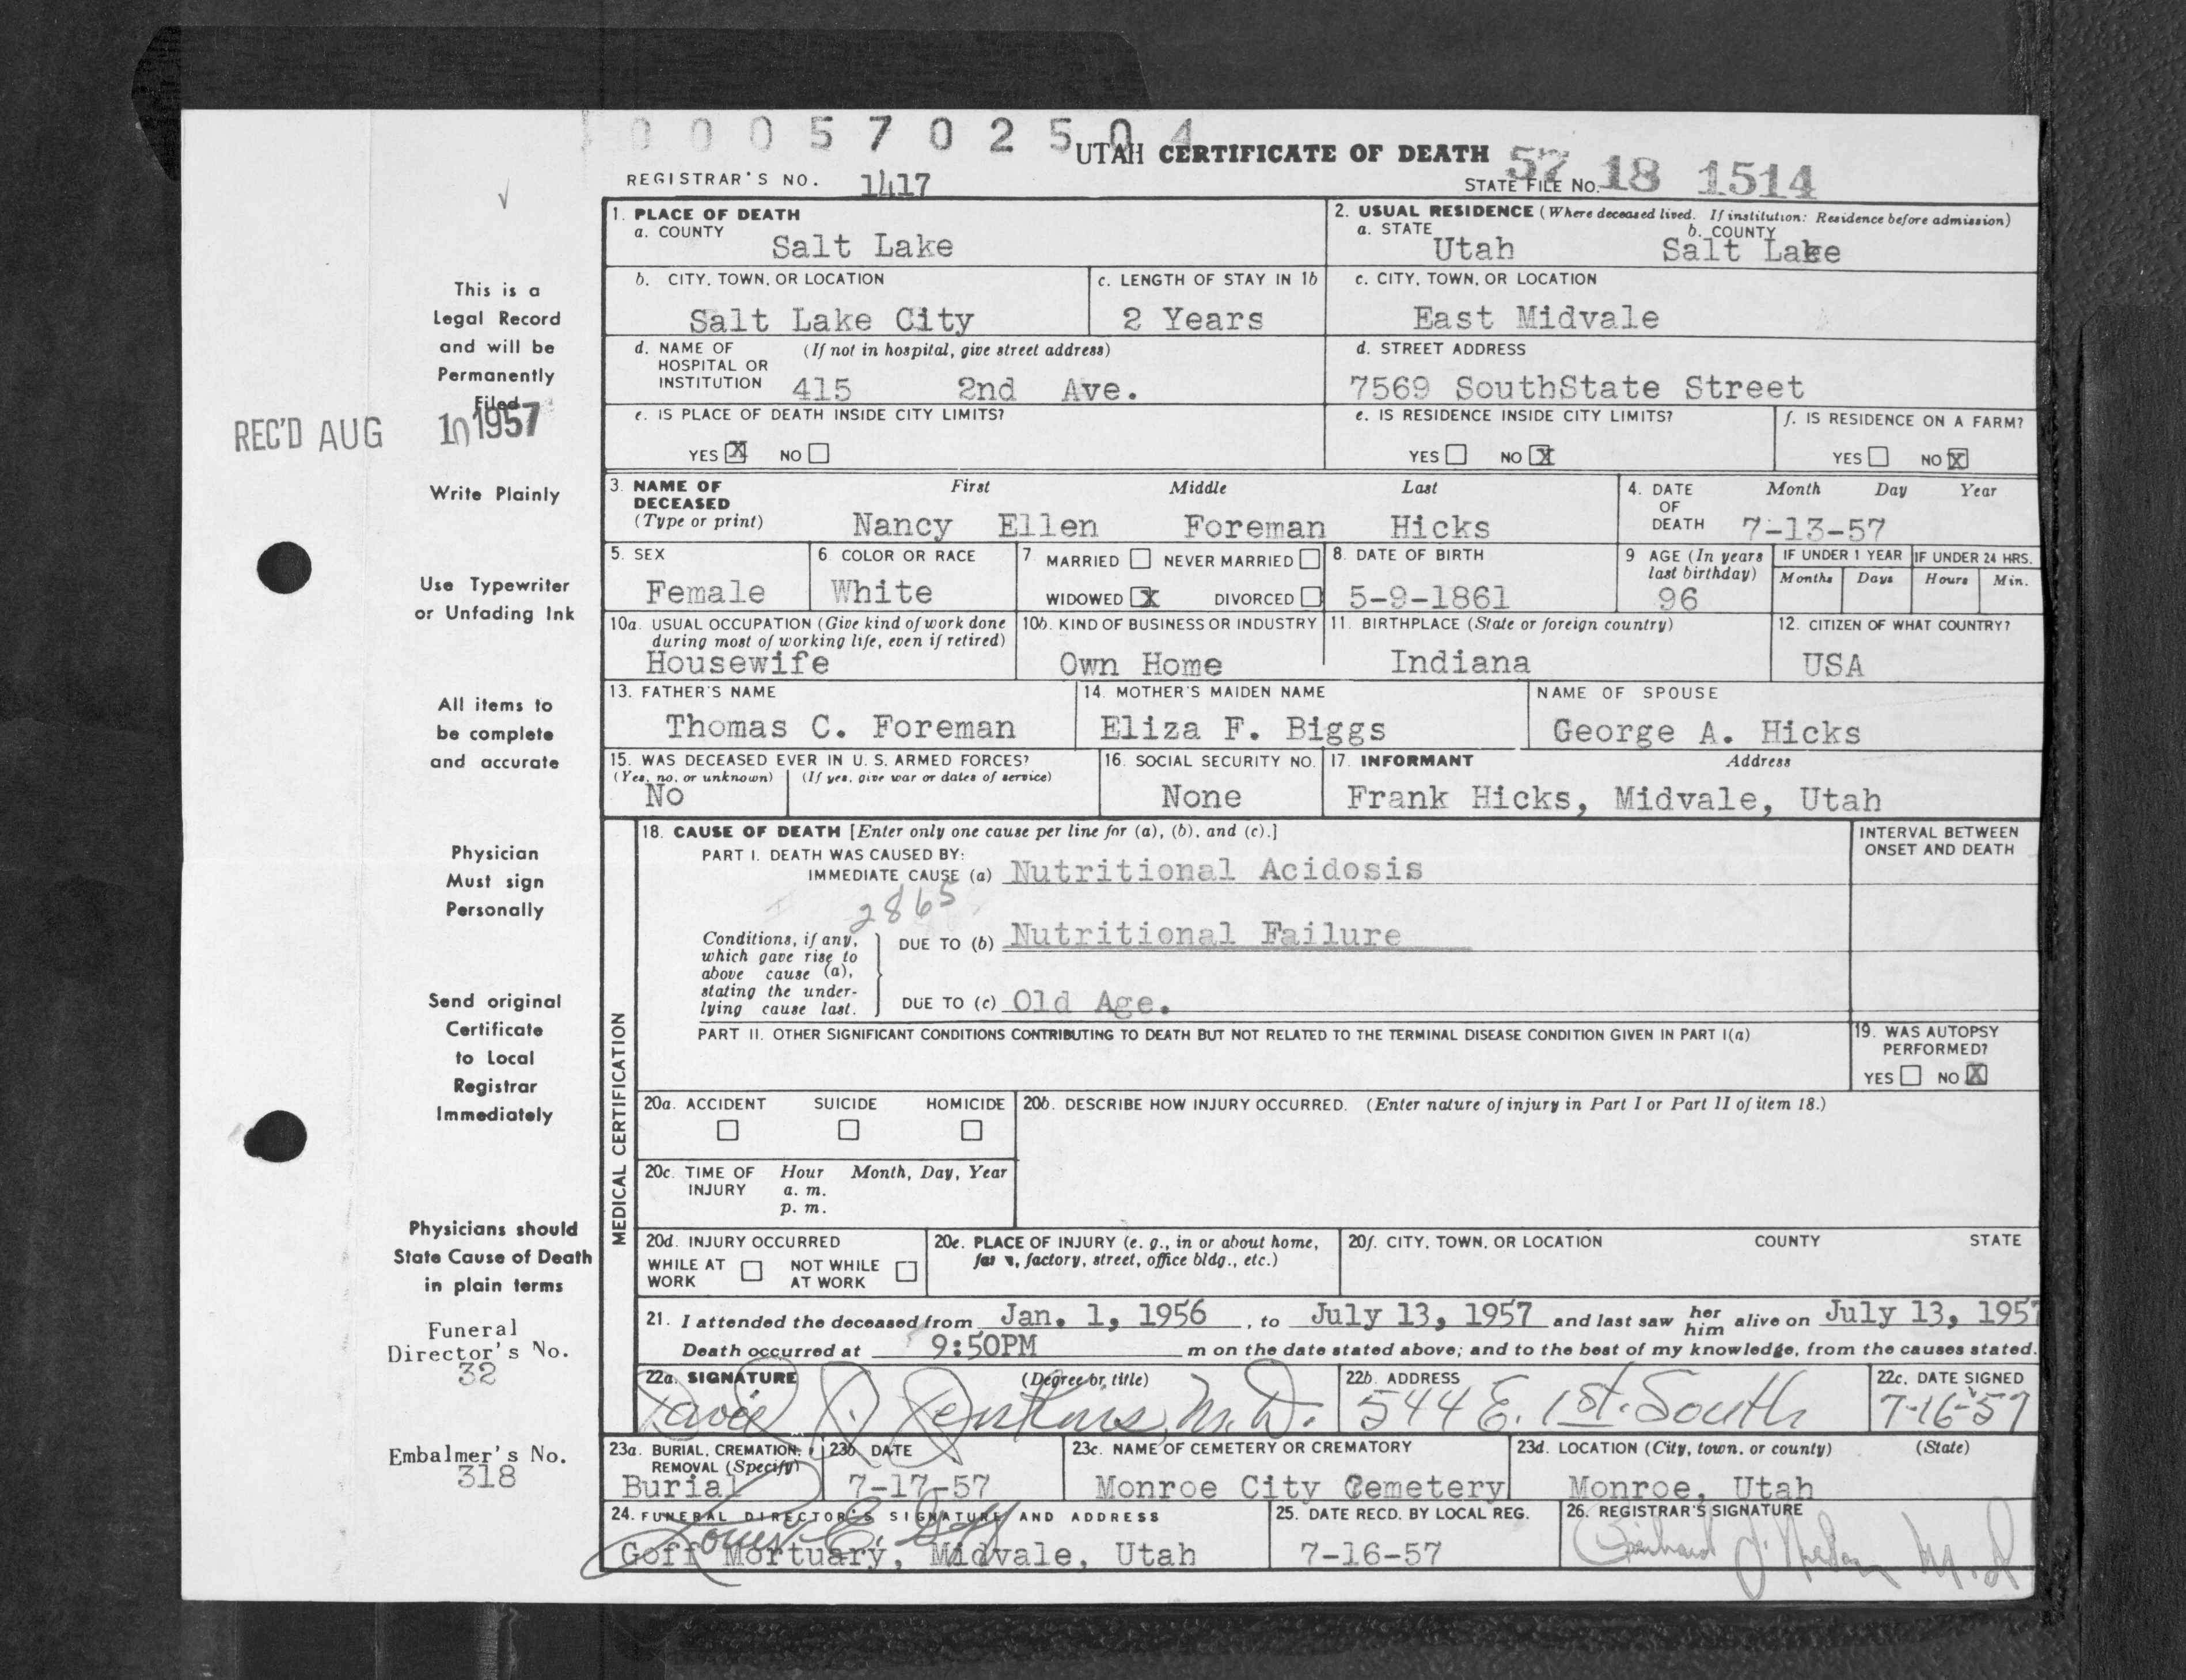 0005702504
UTAH CERTIFICATE OF DEATH
REGISTRAR'S NO. 1417
STATE FILE NO. 57 18 1514
This is a
Legal Record
and will be
Permanently
Filed
REC'D AUG 10 1957
Write Plainly
Use Typewriter
or Unfading Ink
All items to
be complete
and accurate
Physician
Must sign
Personally
Send original
Certificate
to Local
Registrar
Immediately
Physicians should
State Cause of Death
in plain terms
Funeral
Director's No.
32
Embalmer's No.
318
1. PLACE OF DEATH
a. COUNTY
Salt Lake
2. USUAL RESIDENCE (Where deceased lived. If institution: Residence before admission)
a. STATE b. COUNTY
Utah Salt Lake
b. CITY, TOWN, OR LOCATION
Salt Lake City
c. LENGTH OF STAY IN 1b
2 Years
c. CITY, TOWN, OR LOCATION
East Midvale
d. NAME OF (If not in hospital, give street address)
HOSPITAL OR
INSTITUTION 415 2nd Ave.
d. STREET ADDRESS
7569 SouthState Street
e. IS PLACE OF DEATH INSIDE CITY LIMITS?
YES X NO
e. IS RESIDENCE INSIDE CITY LIMITS?
YES NO X
f. IS RESIDENCE ON A FARM?
YES NO X
3. NAME OF First Middle Last
DECEASED
(Type or print) Nancy Ellen Foreman Hicks
4. DATE Month Day Year
OF
DEATH 7-13-57
5. SEX
Female
6. COLOR OR RACE
White
7 MARRIED NEVER MARRIED
WIDOWED X DIVORCED
8. DATE OF BIRTH
5-9-1861
9 AGE (In years
last birthday)
96
IF UNDER 1 YEAR
Months Days
IF UNDER 24 HRS.
Hours Min.
10a. USUAL OCCUPATION (Give kind of work done
during most of working life, even if retired)
Housewife
10b. KIND OF BUSINESS OR INDUSTRY
Own Home
11. BIRTHPLACE (State or foreign country)
Indiana
12. CITIZEN OF WHAT COUNTRY?
USA
13. FATHER'S NAME
Thomas C. Foreman
14. MOTHER'S MAIDEN NAME
Eliza F. Biggs
NAME OF SPOUSE
George A. Hicks
15. WAS DECEASED EVER IN U. S. ARMED FORCES?
(Yes, no, or unknown) (If yes, give war or dates of service)
No
16. SOCIAL SECURITY NO.
None
17. INFORMANT Address
Frank Hicks, Midvale, Utah
MEDICAL CERTIFICATION
18. CAUSE OF DEATH [Enter only one cause per line for (a), (b), and (c).]
INTERVAL BETWEEN
ONSET AND DEATH
PART I. DEATH WAS CAUSED BY:
IMMEDIATE CAUSE (a) Nutritional Acidosis
2865
Conditions, if any,
which gave rise to
above cause (a),
stating the under-
lying cause last.
DUE TO (b) Nutritional Failure
DUE TO (c) Old Age.
PART II. OTHER SIGNIFICANT CONDITIONS CONTRIBUTING TO DEATH BUT NOT RELATED TO THE TERMINAL DISEASE CONDITION GIVEN IN PART I(a)
19. WAS AUTOPSY
PERFORMED?
YES NO X
20a. ACCIDENT SUICIDE HOMICIDE
20b. DESCRIBE HOW INJURY OCCURRED. (Enter nature of injury in Part I or Part II of item 18.)
20c. TIME OF Hour Month, Day, Year
INJURY a. m.
p. m.
20d. INJURY OCCURRED
WHILE AT NOT WHILE
WORK AT WORK
20e. PLACE OF INJURY (e. g., in or about home,
factory, street, office bldg., etc.)
20f. CITY, TOWN, OR LOCATION COUNTY STATE
21. I attended the deceased from Jan. 1, 1956, to July 13, 1957 and last saw her him alive on July 13, 1957
Death occurred at 9:50PM m on the date stated above; and to the best of my knowledge, from the causes stated.
22a. SIGNATURE (Degree or title)
David D. Jenkins, M.D.
22b. ADDRESS
544 E. 1st. South
22c. DATE SIGNED
7-16-57
23a. BURIAL, CREMATION,
REMOVAL (Specify)
Burial
23b. DATE
7-17-57
23c. NAME OF CEMETERY OR CREMATORY
Monroe City Cemetery
23d. LOCATION (City, town, or county) (State)
Monroe, Utah
24. FUNERAL DIRECTOR'S SIGNATURE AND ADDRESS
Goff Mortuary, Midvale, Utah
25. DATE RECD. BY LOCAL REG.
7-16-57
26. REGISTRAR'S SIGNATURE